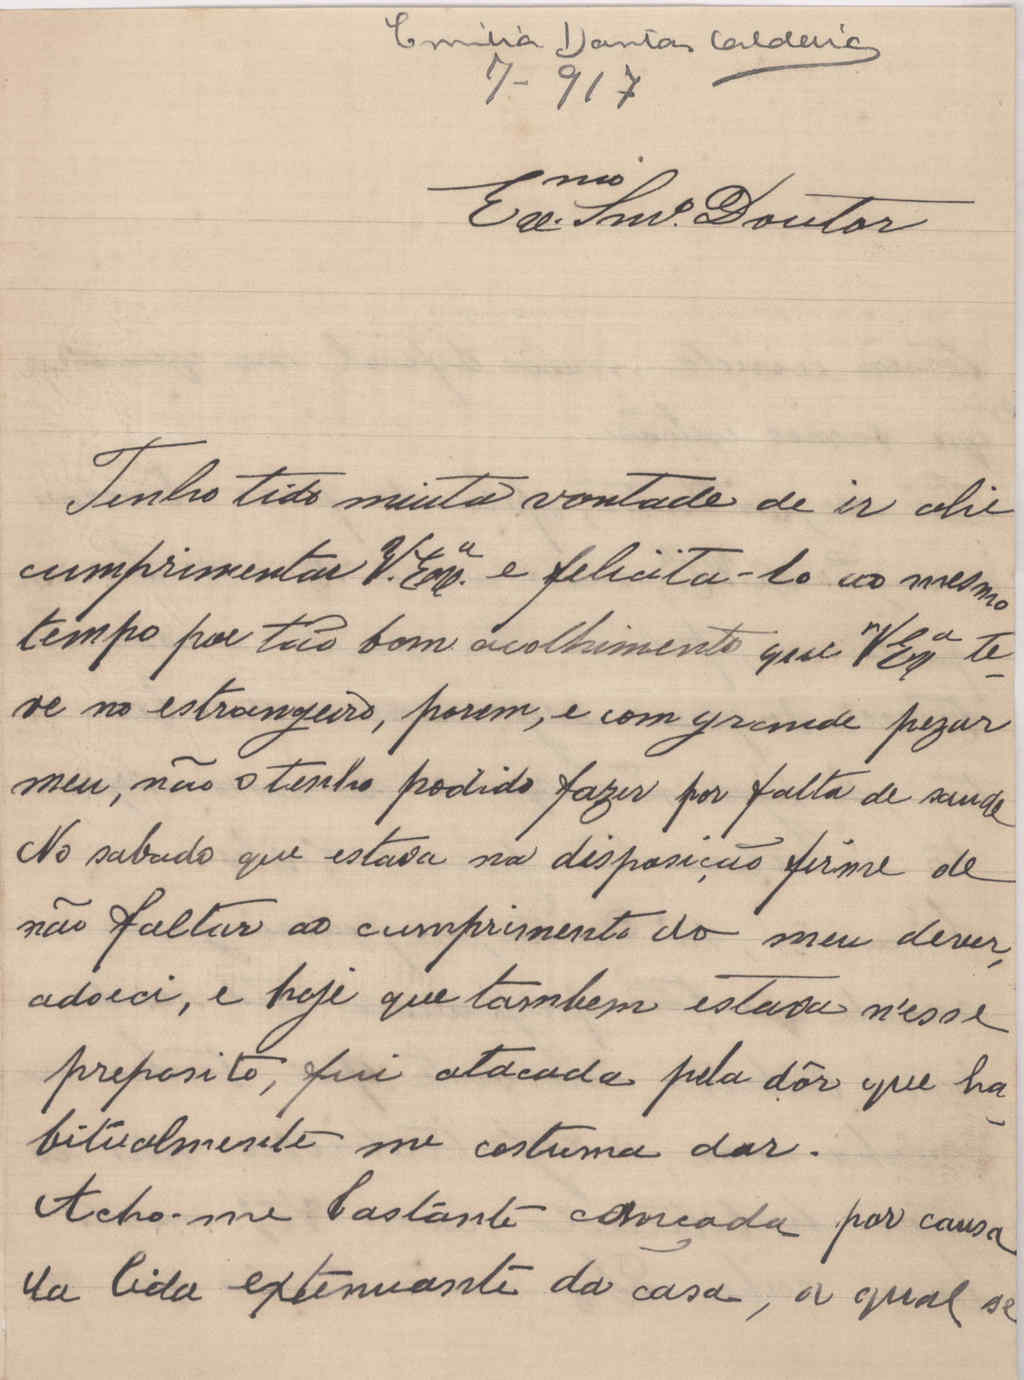 Emilia Dantas Caldeira
7-917
Exmo. Snr. Doutor
Tenho tido muita vontade de ir ahi
cumprimentar V. Exa. e felicita-lo ao mesmo
tempo por tão bom acolhimento que V Exa te-
ve no estrangeiro, porem, e com grande pezar
meu, não o tenho podido fazer por falta de saude
No sabado que estava na disposição firme de
não faltar ao cumprimento do meu dever,
adoeci, e hoje que tambem estava n'esse
preposito, fui atacada pela dôr que ha-
bitualmente me costuma dar.
Acho-me bastante cançada por causa
da lida extenuante da casa, a qual se